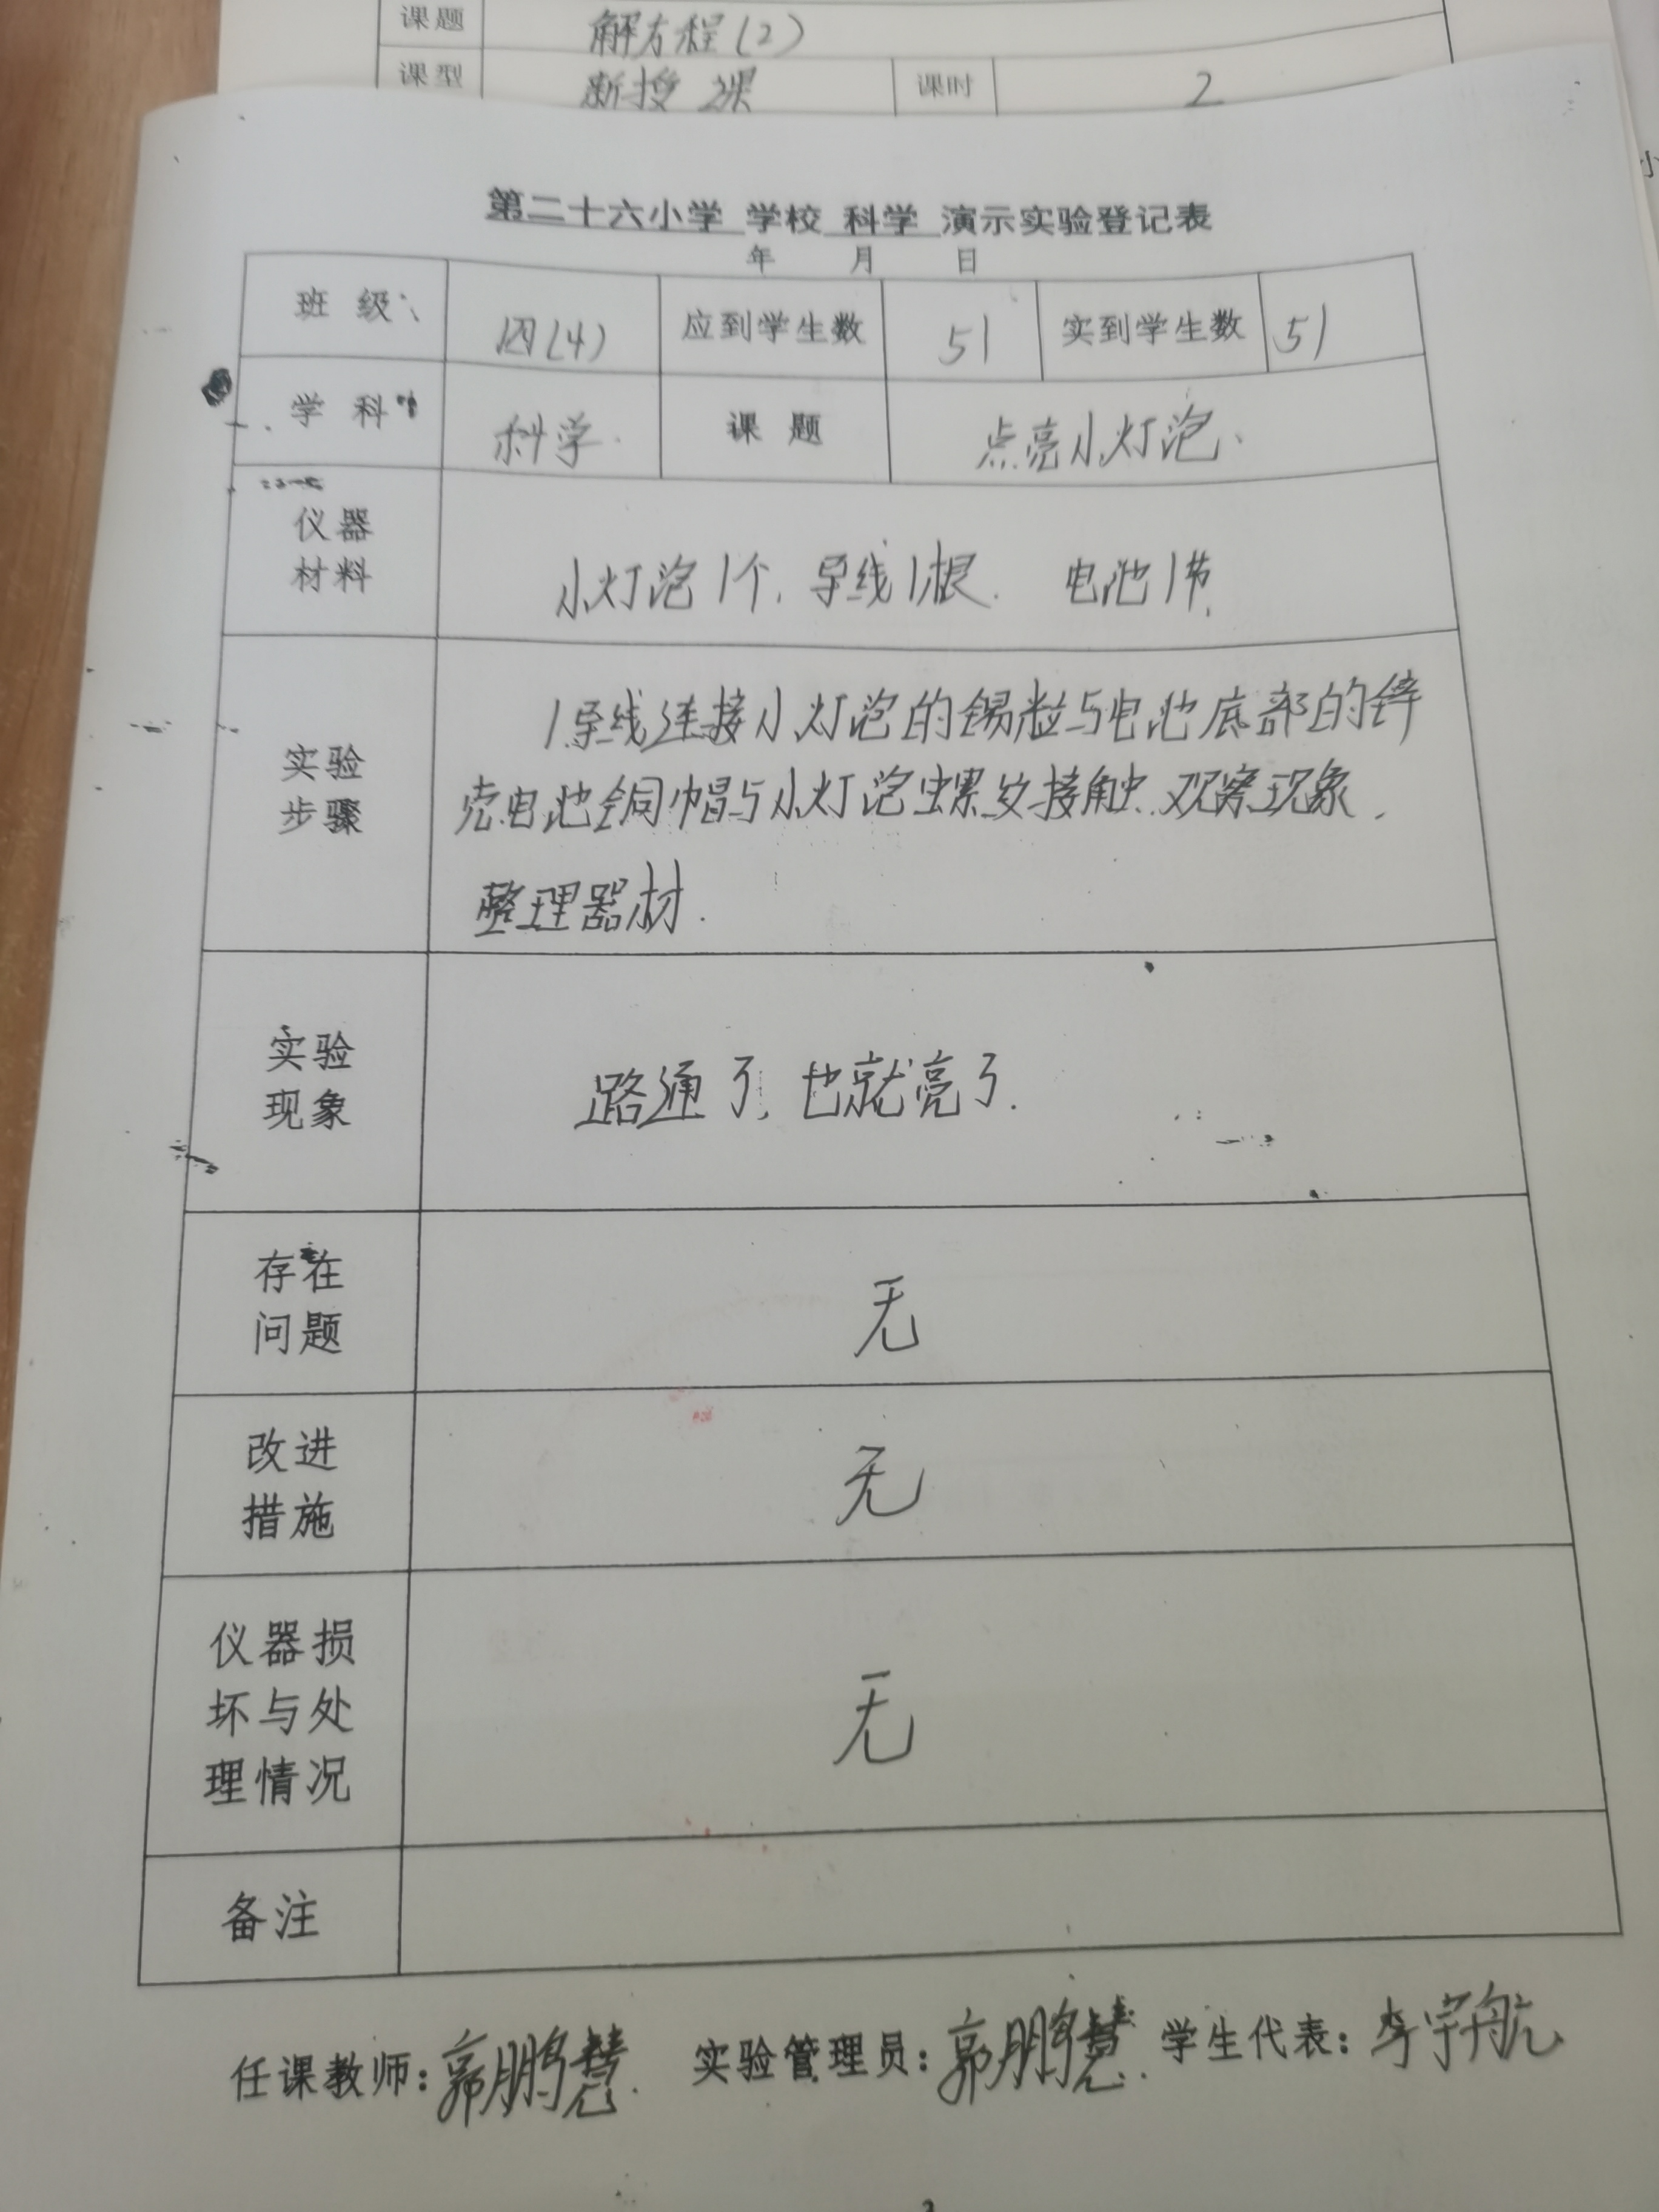 课题 解方程(2)
课型 新授课 课时 2
第二十六小学 学校 科学 演示实验登记表
年 月 日
班 级 四(4) 应到学生数 51 实到学生数 51
学 科 科学 课 题 点亮小灯泡
仪器
材料
小灯泡1个. 导线1根. 电池1节.
实验
步骤
1.导线连接小灯泡的锡粒与电池底部的锌
壳.电池铜帽与小灯泡螺纹接触.观察现象.
整理器材.
实验
现象
路通了,也就亮了.
存在
问题
无
改进
措施
无
仪器损
坏与处
理情况
无
备注
任课教师:郭鹏慧. 实验管理员:郭鹏慧. 学生代表:李宇航